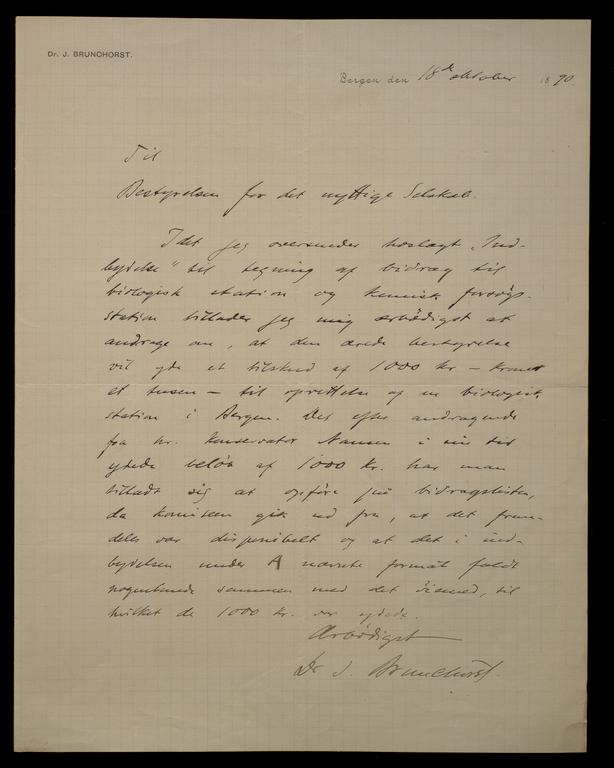 Dr. J. BRUNCHORST.
Bergen den 18de oktober 1890.
Til
Bestyrelsen for det nyttige Selskab.
Idet jeg oversender hoslagt "Ind-
bydelse" til tegning af bidrag til
biologisk station og kemisk forsøgs-
station tillader jeg mig ærbødigst at
andrage om, at den ærede bestyrelse
vil yde et tilskud af 1000 kr – kroner
et tusen – til oprettelse af en biologisk
station i Bergen. Det efter andragende
fra hr. konservator Nansen i sin tid
ydede beløb af 1000 kr. har man
tilladt sig at opføre på bidragslisten,
da komiteen gik ud fra, at det frem-
deles var disponibelt og at det i ind-
bydelsen under A nævnte formål faldt
nogenlunde sammen med det øiemed, til
hvilket de 1000 kr. var ydede.
Ærbødigst
Dr J. Brunchorst.